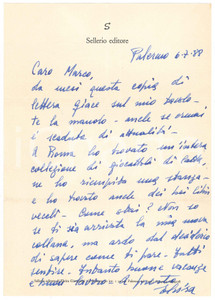 S
Sellerio editore
Palermo 6-7-88
Caro Marco,
da mesi questa copia di
lettera giace sul mio tavolo -
te la mando - anche se ormai
è scaduta di attualità -
A Roma ho trovato un'intera
collezione di giocattoli di latta,
ne ho riempita una stanza -
e ho trovato anche dei bei libri
vecchi - Come stai? Non so
se ti sia arrivata la mia nuova
collana, ma ardo dal desiderio
di sapere come ti pare - Fatti
sentire - Intanto buone vacanze
e a presto